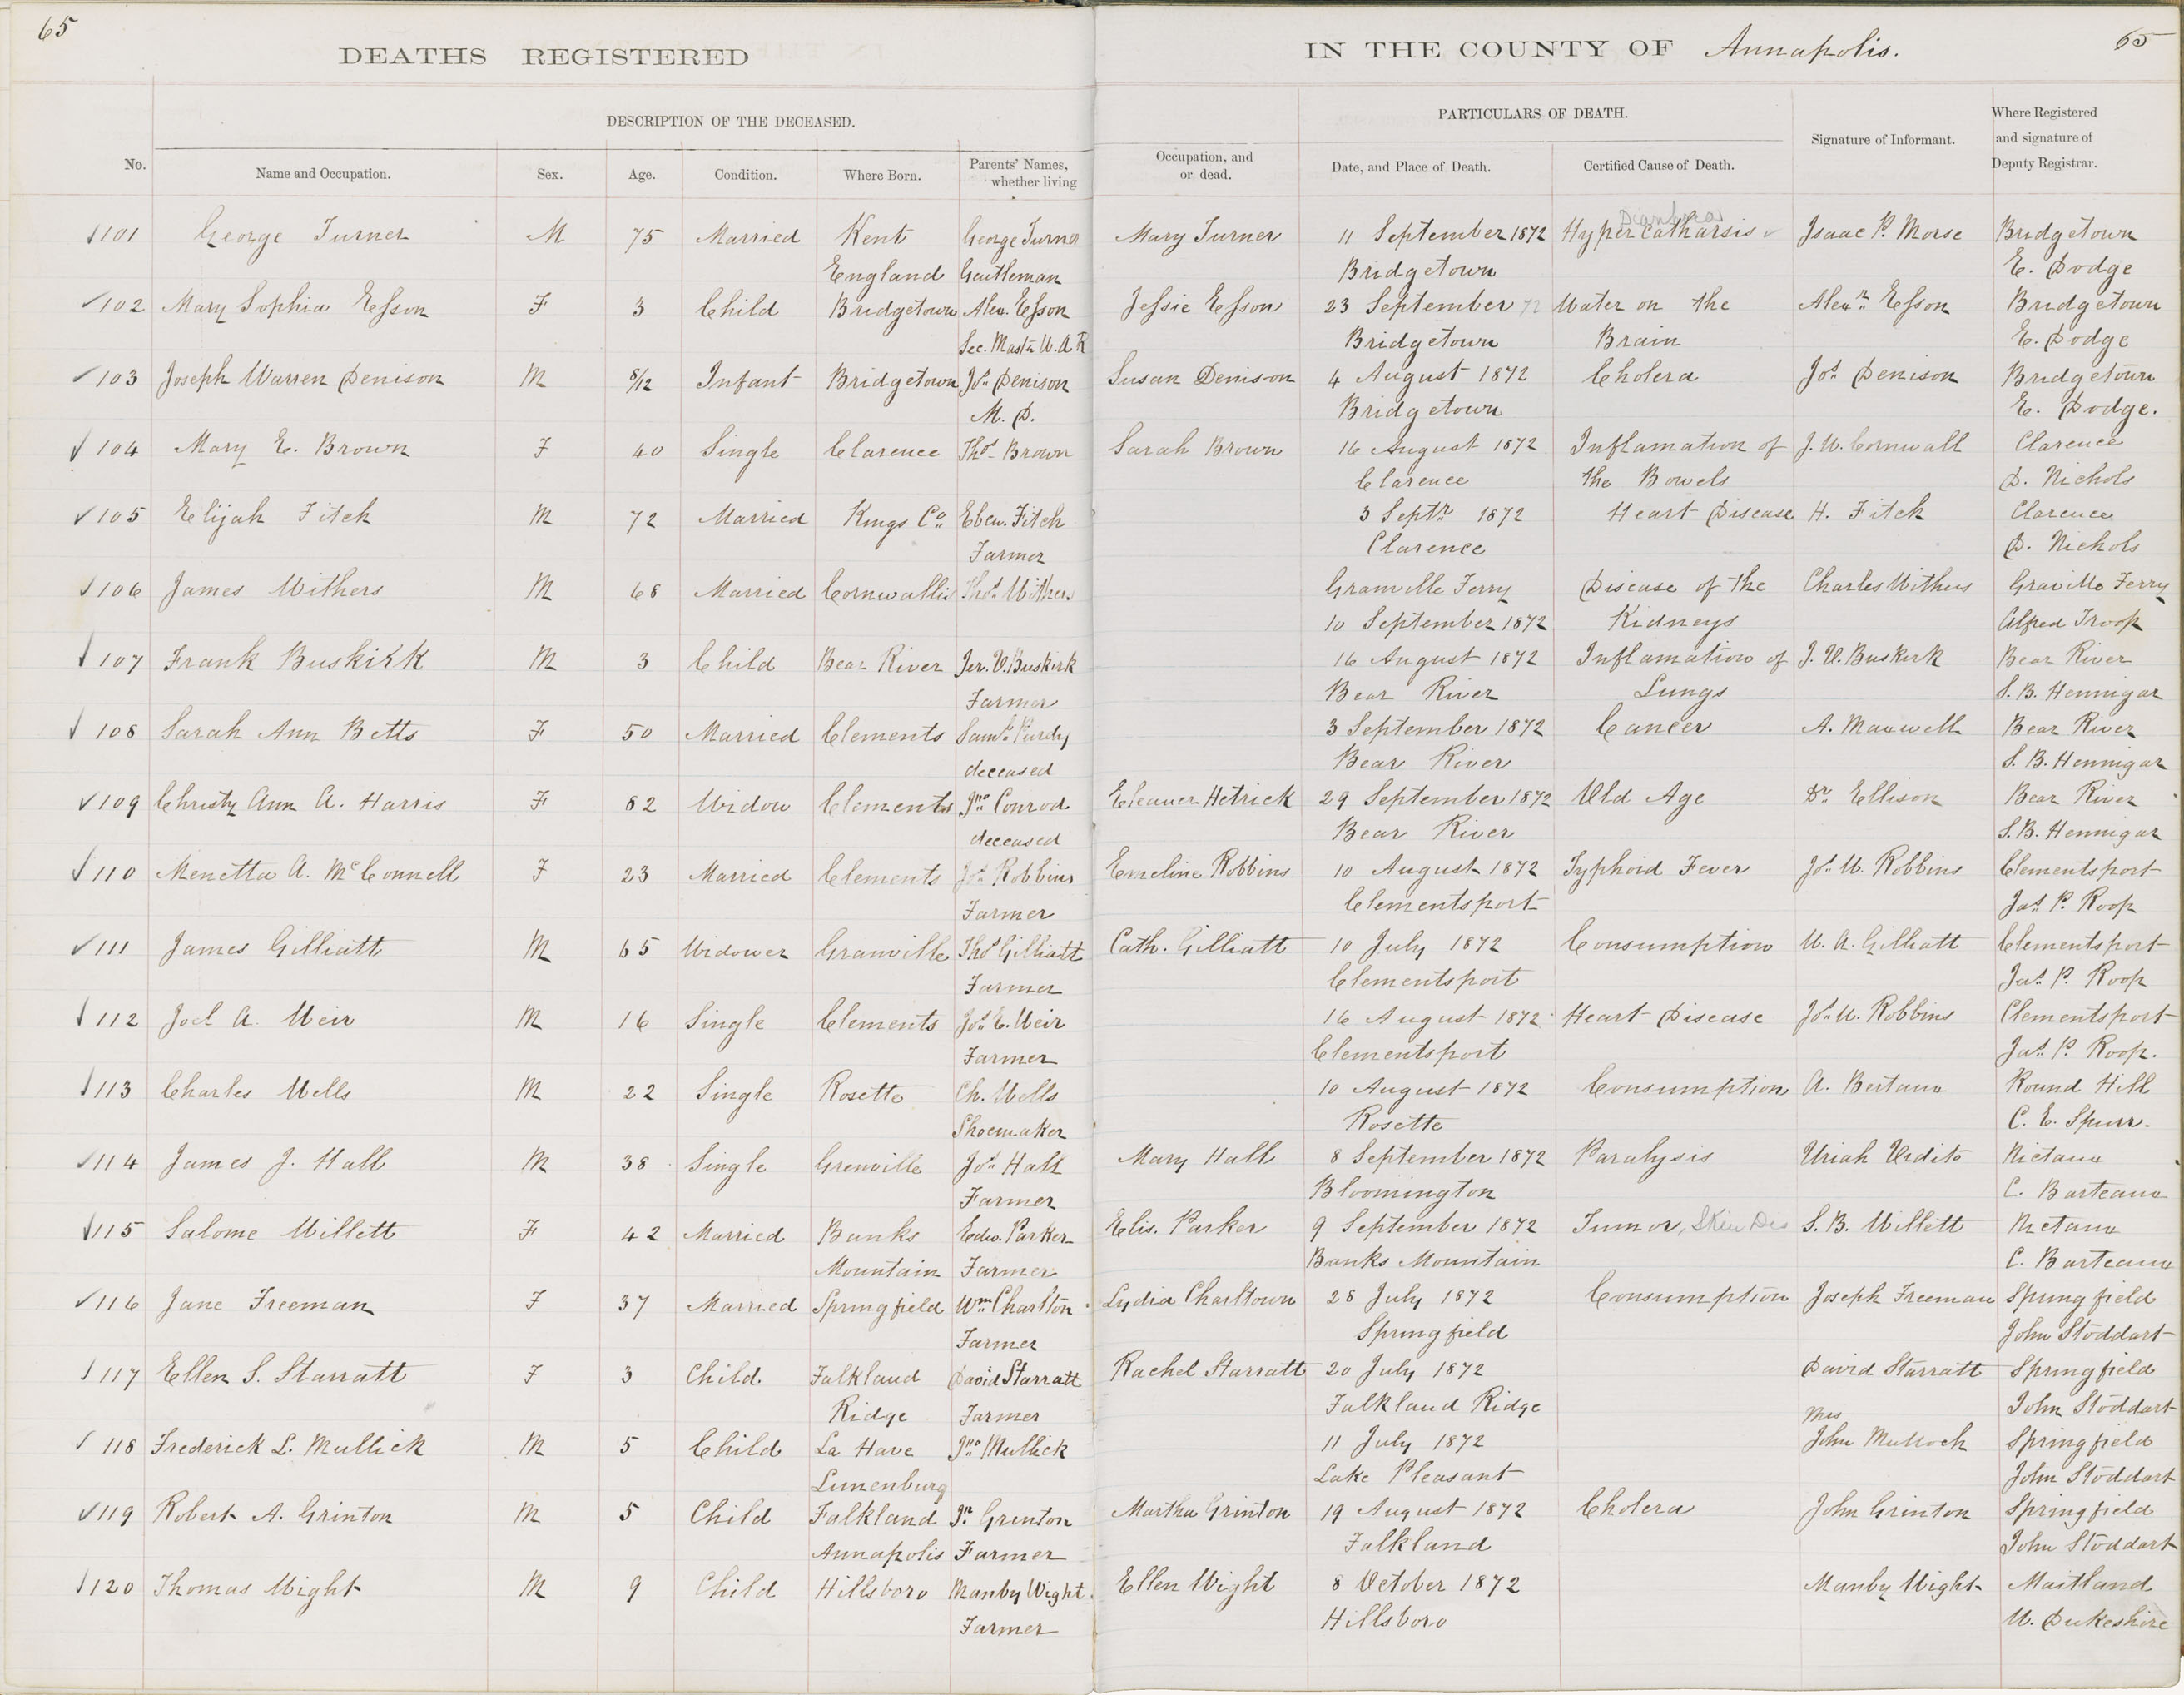 65
65
DEATHS REGISTERED IN THE COUNTY OF Annapolis.
DESCRIPTION OF THE DECEASED. PARTICULARS OF DEATH.
No. Name and Occupation. Sex. Age. Condition. Where Born. Parents' Names, whether living Occupation, and or dead. Date, and Place of Death. Certified Cause of Death. Signature of Informant. Where Registered and signature of Deputy Registrar.
101 George Turner M 75 Married Kent George Turner Mary Turner 11 September 1872 Hyper Catharsis Isaac P. Morse Bridgetown
England Gentleman Bridgetown E. Dodge
102 Mary Sophia Esson F 3 Child Bridgetown Alex. Esson Jessie Esson 23 September 72 Water on the Alexr. Esson Bridgetown
Sec. Mastr W. A. R Bridgetown Brain E. Dodge
103 Joseph Warren Denison M 8/12 Infant Bridgetown Jos. Denison Susan Denison 4 August 1872 Cholera Jos. Denison Bridgetown
M. D. Bridgetown E. Dodge.
104 Mary E. Brown F 40 Single Clarence Thos. Brown Sarah Brown 16 August 1872 Inflamation of J. W. Cornwall Clarence
Clarence the Bowels D. Nichols
105 Elijah Fitch M 72 Married Kings Co. Eben. Fitch 3 Septr 1872 Heart Disease H. Fitch Clarence
Farmer Clarence D. Nichols
106 James Withers M 68 Married Cornwallis Thos. Withers Granville Ferry Disease of the Charles Withers Graville Ferry
10 September 1872 Kidneys Alfred Troop
107 Frank Buskirk M 3 Child Bear River Jer. V. Buskirk 16 August 1872 Inflamation of J. V. Buskirk Bear River
Farmer Bear River Lungs S. B. Hennigar
108 Sarah Ann Betts F 50 Married Clements Saml. Purdy 3 September 1872 Cancer A. Maxwell Bear River
deceased Bear River S. B. Hennigar
109 Christy Ann A. Harris F 82 Widow Clements Jno. Conrod Eleaner Hetrick 29 September 1872 Old Age Dr. Ellison Bear River
deceased Bear River S. B. Hennigar
110 Menetta A. McConnell F 23 Married Clements Jos. Robbins Emeline Robbins 10 August 1872 Typhoid Fever Jos. W. Robbins Clementsport
Farmer Clementsport Jas. P. Roop
111 James Gilliatt M 65 Widower Granville Thos Gilliatt Cath. Gilliatt 10 July 1872 Consumption W. A. Gilliatt Clementsport
Farmer Clementsport Jas. P. Roop
112 Joel A. Weir M 16 Single Clements Jos. E. Weir 16 August 1872 Heart Disease Jos. W. Robbins Clementsport
Farmer Clementsport Jas. P. Roop.
113 Charles Wells M 22 Single Rosette Ch. Wells 10 August 1872 Consumption A. Bertaux Round Hill
Shoemaker Rosette C. E. Spurr.
114 James J. Hall M 38 Single Grenville Jos. Hall Mary Hall 8 September 1872 Paralysis Uriah Vidito Nictaux
Farmer Bloomington C. Barteaux
115 Salome Willett F 42 Married Banks Edw. Parker Elis. Parker 9 September 1872 Tumor, Skin Dis S. B. Willett Nictaux
Mountain Farmer Banks Mountain C. Barteaux
116 Jane Freeman F 37 Married Springfield Wm Charlton Lydia Charltown 28 July 1872 Consumption Joseph Freeman Springfield
Farmer Springfield John Stoddart
117 Ellen S. Starratt F 3 Child. Falkland David Starratt Rachel Starratt 20 July 1872 David Starratt Springfield
Ridge Farmer Falkland Ridge John Stoddart
118 Frederick L. Mullick M 5 Child La Have Jno. Mullick 11 July 1872 Mrs John Mullock Springfield
Lunenburg Lake Pleasant John Stoddart
119 Robert A. Grinton M 5 Child Falkland Jn. Grenton Martha Grinton 19 August 1872 Cholera John Grinton Springfield
Annapolis Farmer Falkland John Stoddart
120 Thomas Wight M 9 Child Hillsboro Manby Wight Ellen Wight 8 October 1872 Manby Wight Maitland
Farmer Hillsboro W. Dukeshire